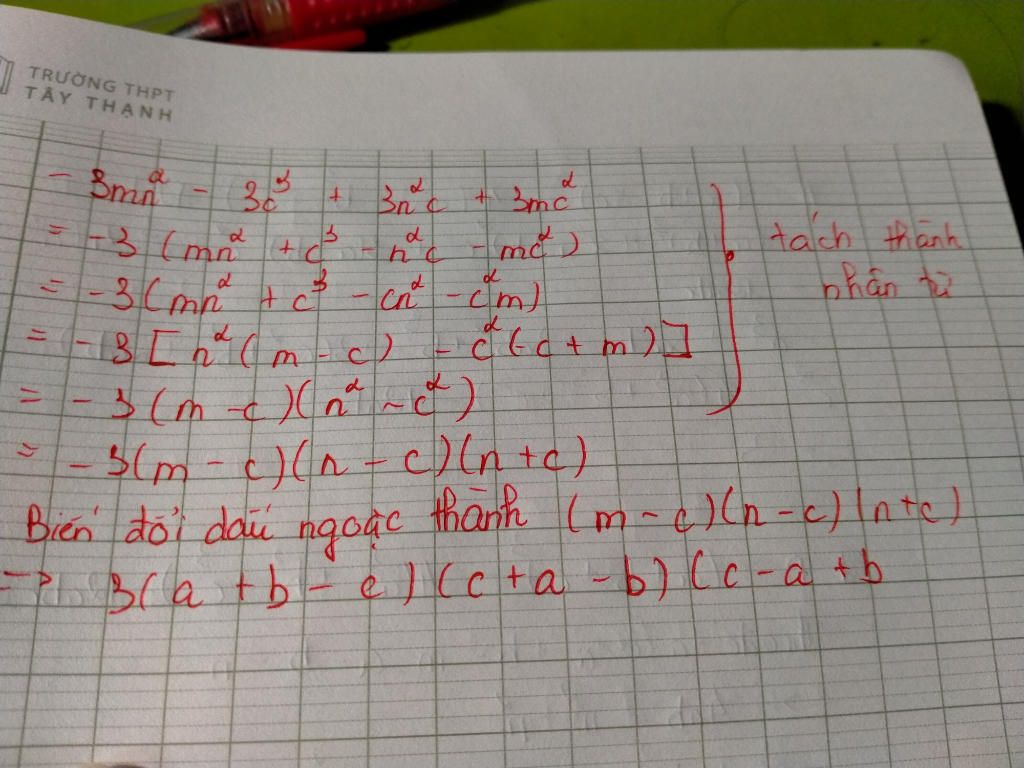 TRƯỜNG THPT
TÂY THẠNH
- 3mn² - 3c³ + 3n²c + 3mc²
= -3 (mn² + c³ - n²c - mc²)
= -3(mn² + c³ - cn² - c²m)
= -3 [n²(m - c) - c²(-c + m)]
= -3(m - c)(n² - c²)
= -3(m - c)(n - c)(n + c)
tách thành
nhân tử
Biến đổi dấu ngoặc thành (m - c)(n - c)(n + c)
→ 3(a + b - c)(c + a - b)(c - a + b